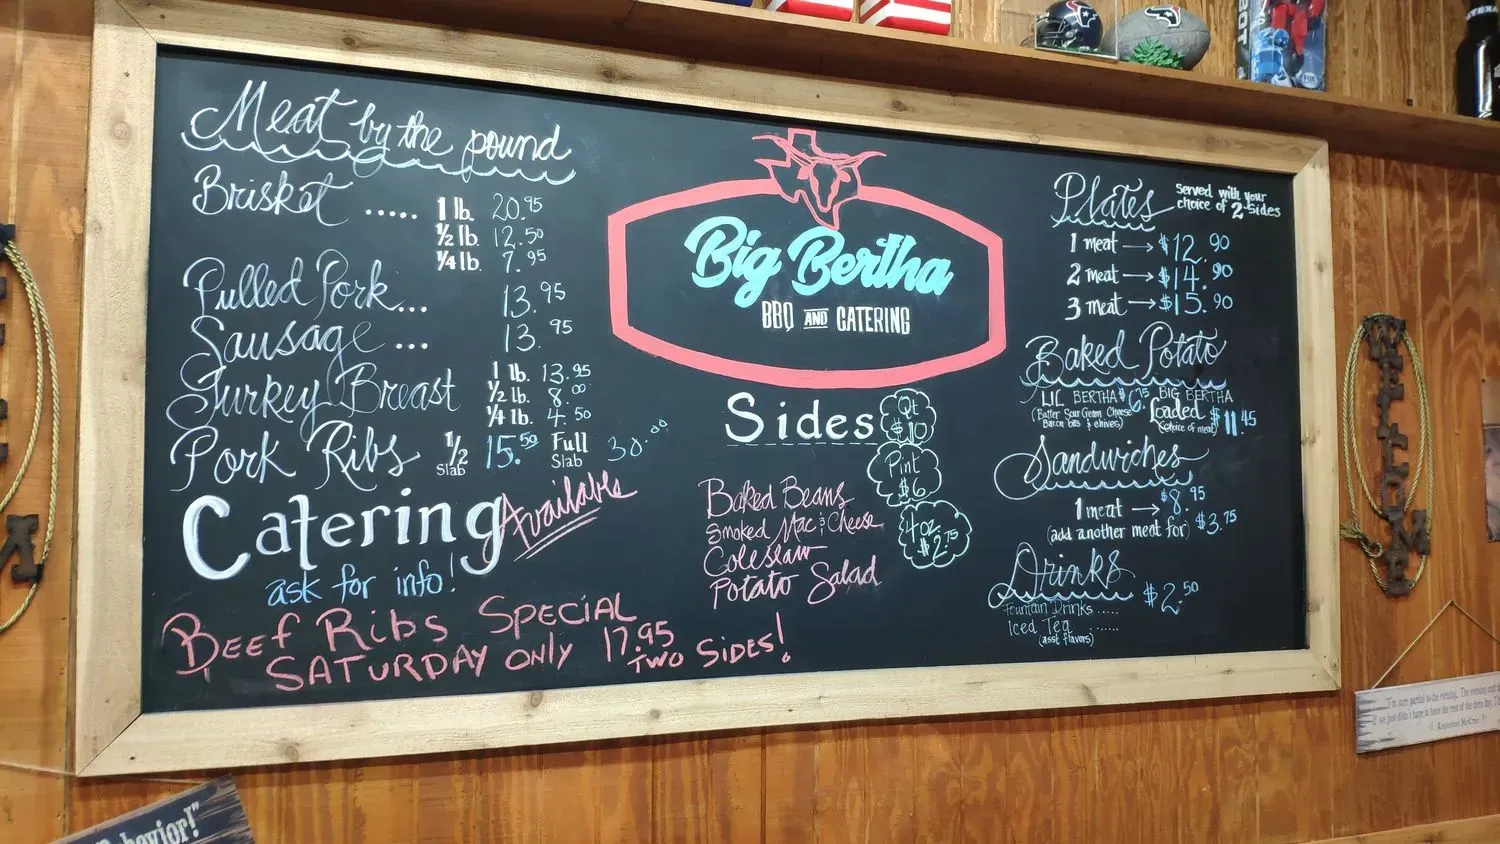 Meat by the pound
Brisket ..... 1 lb. 20.95
½ lb. 12.50
¼ lb. 7.95
Pulled Pork... 13.95
Sausage ... 13.95
Turkey Breast 1 lb. 13.95
½ lb. 8.00
¼ lb. 4.50
Pork Ribs ½ Slab 15.50 Full Slab 30.00
Catering Available
ask for info!
BEEF RIBS SPECIAL
SATURDAY ONLY 17.95
TWO SIDES!
Big Bertha
BBQ AND CATERING
Sides
Qt $10
Pint $6
4oz. $2.75
Baked Beans
Smoked Mac & Cheese
Coleslaw
Potato Salad
Plates Served with your
choice of 2 Sides
1 meat → $12.90
2 meat → $14.90
3 meat → $15.90
Baked Potato
LIL BERTHA $6.95
(Butter Sour Cream Cheese
Bacon bits & chives)
BIG BERTHA
Loaded $11.45
(choice of meat)
Sandwiches
1 meat → $8.95
(add another meat for) $3.75
Drinks
Fountain Drinks ..... $2.50
Iced Tea ......
(asst flavors)
WELCOME
"I'm sure partial to the evening. The evening and
if we just didn't have to have the rest of the dern day.
Augustus McCrae
TEXANS
FOX